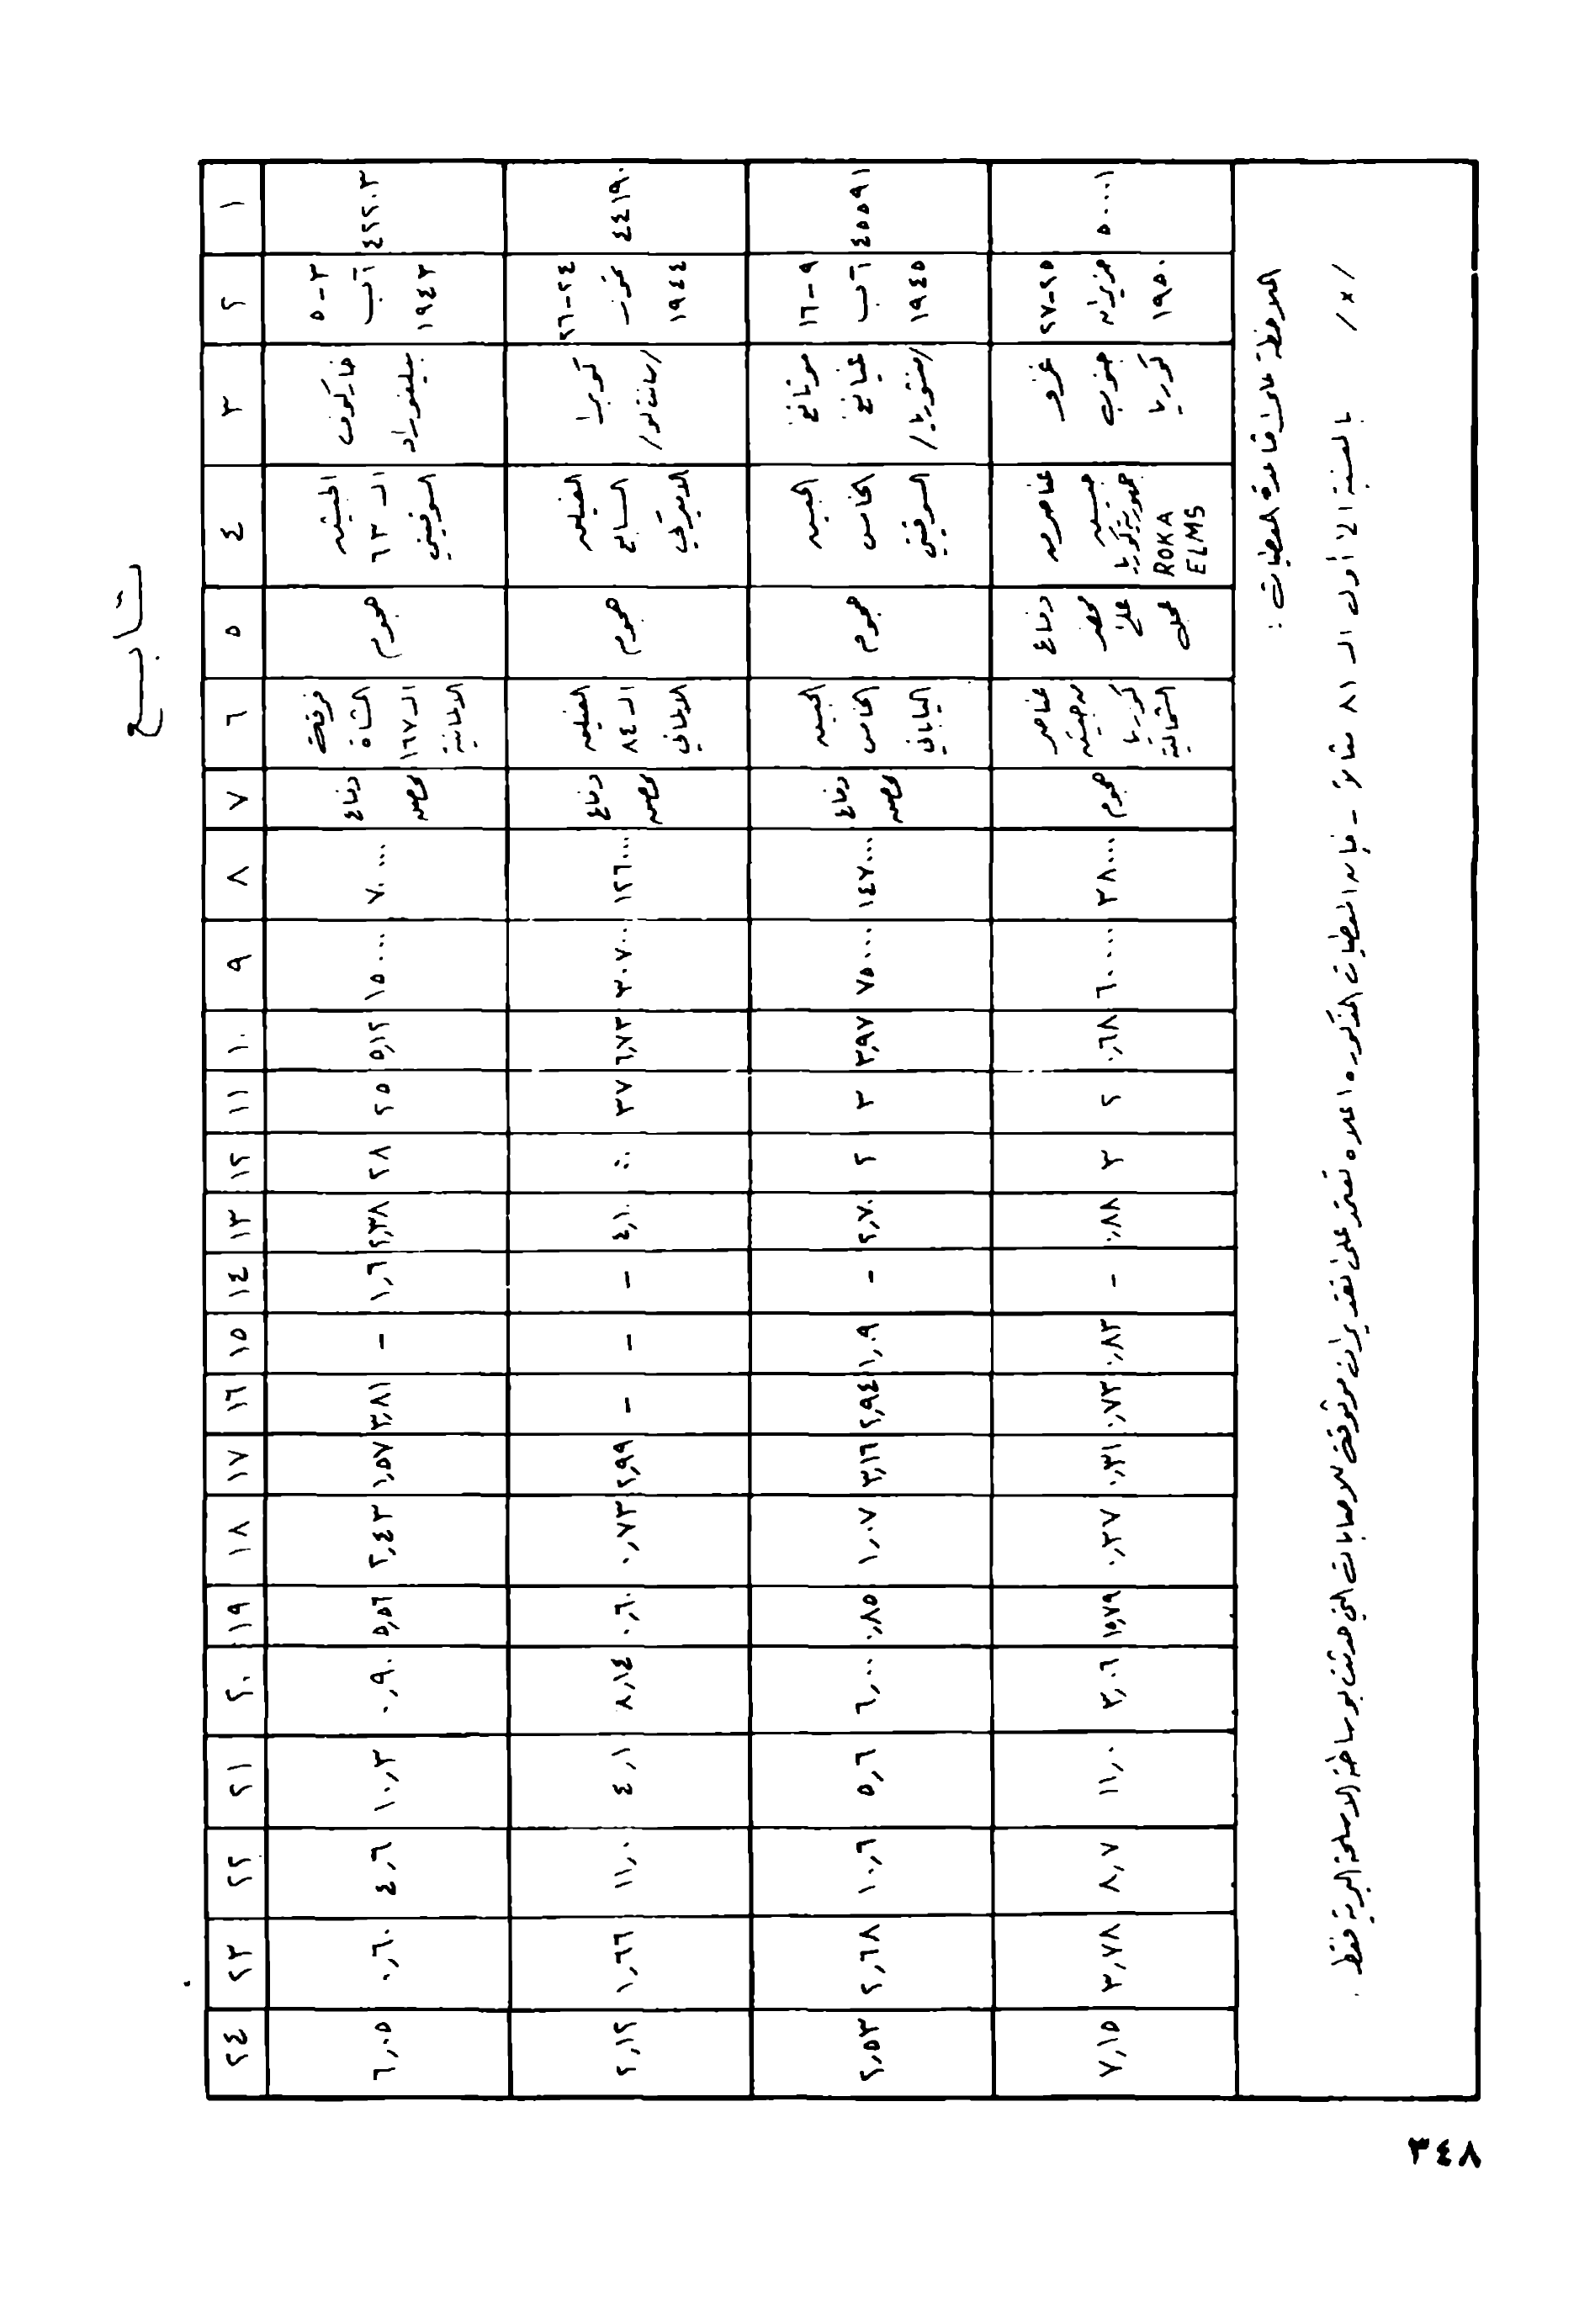 تابع
١ ٢ ٣ ٤ ٥ ٦ ٧ ٨ ٩ ١٠ ١١ ١٢ ١٣ ١٤ ١٥ ١٦ ١٧ ١٨ ١٩ ٢٠ ٢١ ٢٢ ٢٣ ٢٤
٤٢٢٠٣
٣-٥
آب
١٩٤٣
خاركوف
بيلغوراد
الجيش
الـ ٦٣
السوفيتي
هجوم
فرقة
المشاة
الـ ١٦٧
الالمانية
دفاع
محصن
٧٠٠٠٠ ١٥٠٠٠ ٥,١٢ ٢٥ ٢٨ ٢,٣٨ ١,٦ - ٣,٨١ ١,٥٧ ٢,٤٣ ٥,٥٦ ٠,٩٠ ١٠,٣ ٤,٦ ٠,٦٠ ٦,٠٥
٤٤١٩٠
٢٤-٢٦
تموز
١٩٤٤
كوبرا
/سانت لو/
الفيلق
السابع
الاميركي
هجوم
الفيلق
الـ ٨٤
الالماني
دفاع
محصن
١٢٦٠٠٠ ٣٠٧٠٠ ٦,٧٣ ٣٧ ٤,١٠ - - - ٢,٩٩ ٠,٧٣ ٠,٦٠ ٨,١٤ ٤,١ ١١,٠ ١,٦٦ ٢,١٢
٤٥٥٩١
٩-١٦
آب
١٩٤٥
موتانغ
غيانغ
/منشوريا/
الجيش
الخامس
السوفيتي
هجوم
الجيش
الخامس
الياباني
دفاع
محصن
١٤٧٠٠٠ ٧٥٠٠٠ ٣,٩٧ ٣ ٢ ٢,٧٠ - ١,٠٩ ٢,٩٤ ٣,١٦ ١,٠٧ ٠,٨٥ ٦,٠٠ ٥,٦ ١٠,٦ ٢,٦٨ ٢,٥٣
٥٠٠٠١
٢٥-٢٧
حزيران
١٩٥٠
غزو
جنوب
كوريا
عناصر من
جيش
جمهورية كوريا
ROKA
ELMS
دفاع
محضر
على
عجل
عناصر
من جيش
كوريا
الشمالية
هجوم
٣٨٠٠٠ ٦٠٠٠٠ ٠,٦٨ ٢ ٣ ٠,٨٨ - ٠,٨٣ ٠,٧٣ ٠,٣١ ٠,٢٧ ١٥,٧٩ ٣,٠٦ ١١,٠ ٨,٧ ٣,٧٨ ٧,١٥
الملاحظة على قاعدة المعطيات :
/×/ بالنسبة الى أول الـ ٨١ مثالا - فإن المعطيات المذكورة اعلاه تعتمد على تقديرات موثوقة للاصابات التي حدثت بوساطة الاسلحة البرية فقط .
٣٤٨